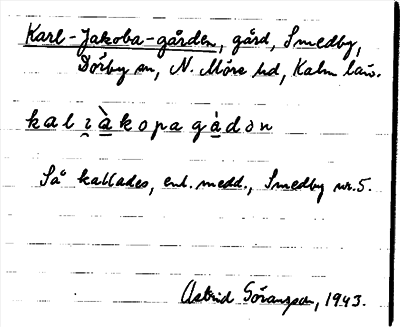 Karl-Jakoba-gården, gård, Smedby,
Dörby sn, N. Möre hd, Kalm län.
kalɪ̯àkopagàdon
Så kallades, enl. medd., Smedby nr. 5.
Astrid Göransson, 1943.